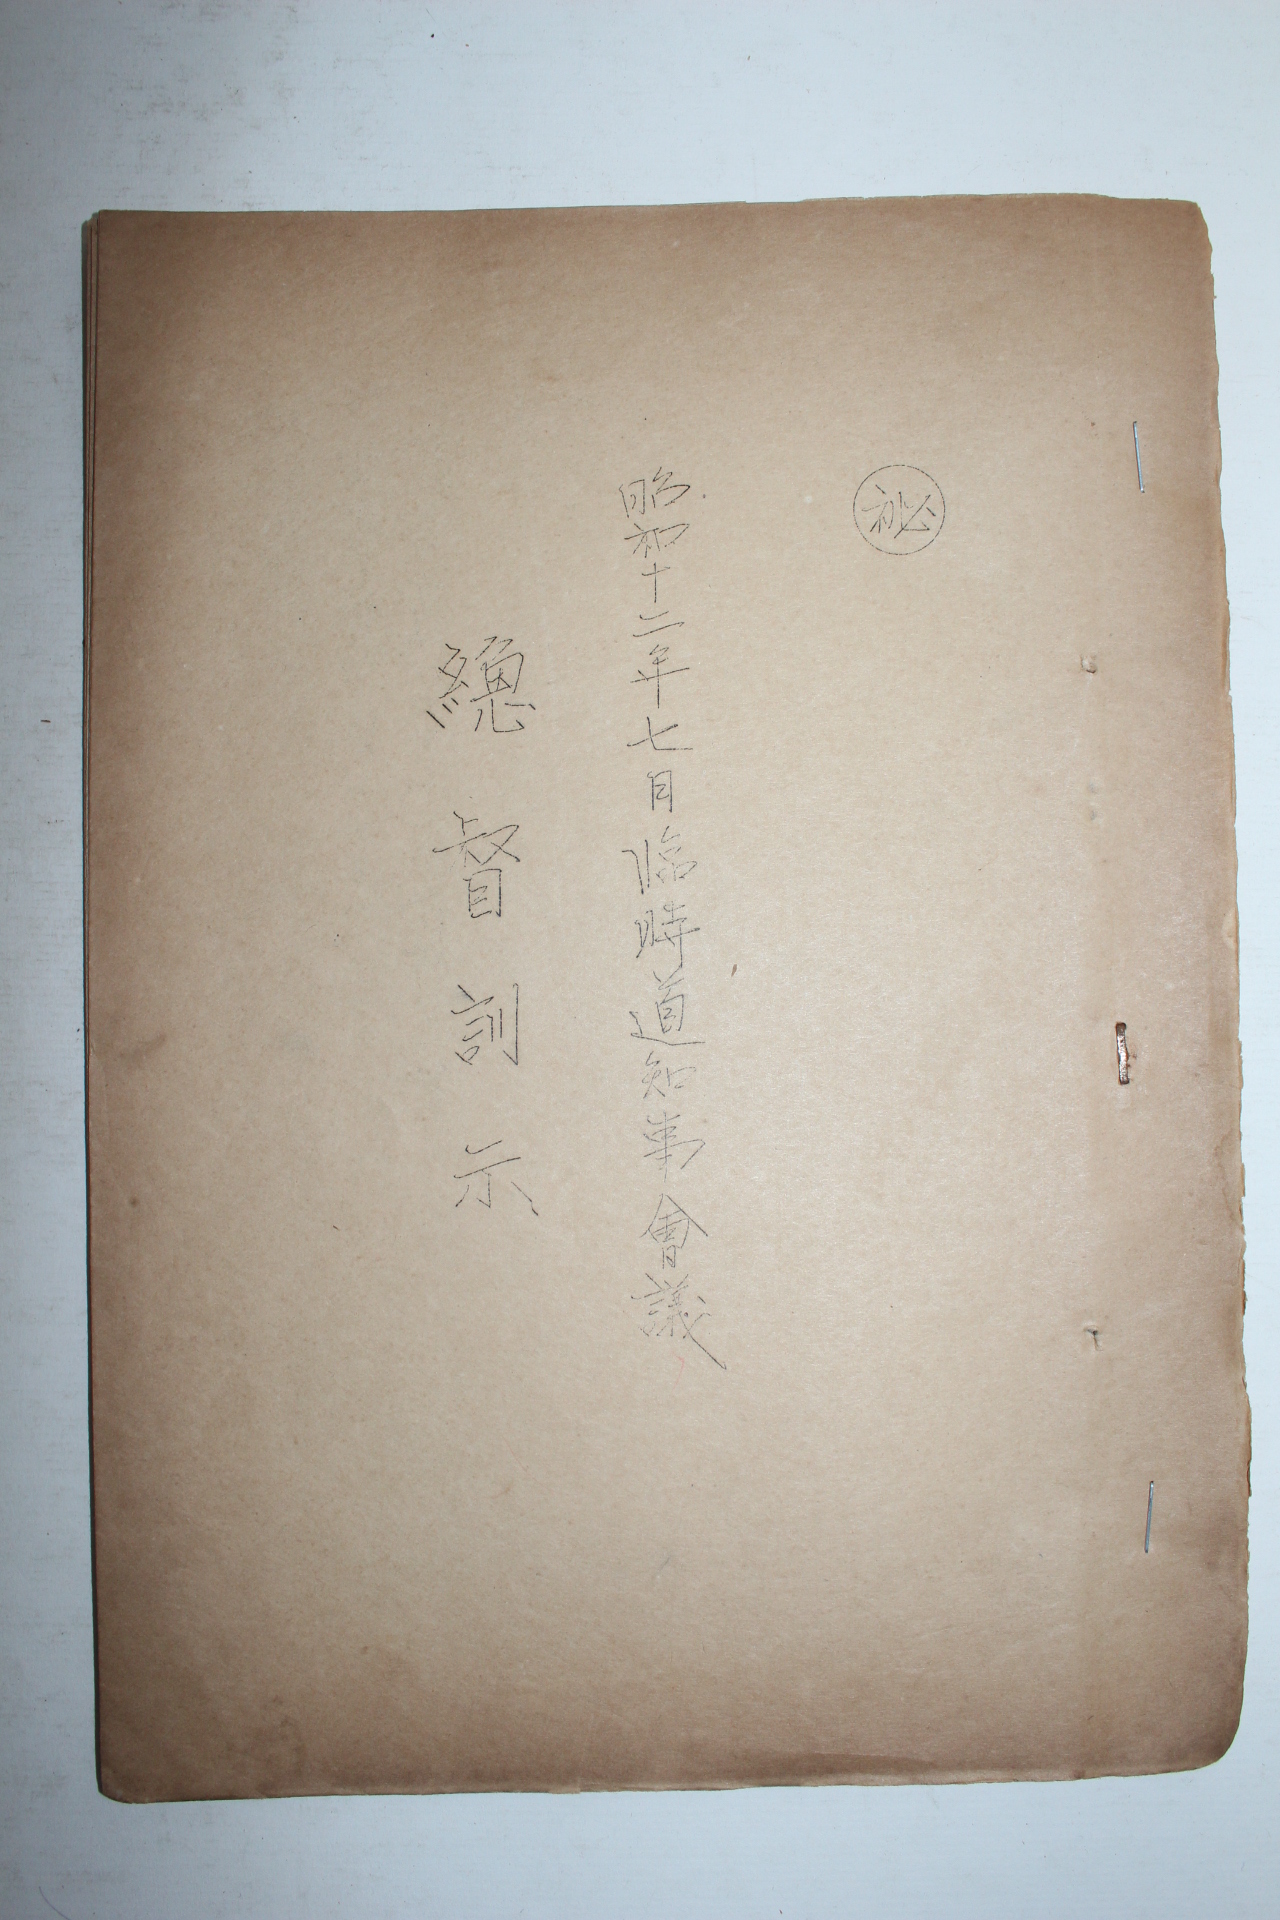 秘
昭和十二年七月臨時道知事會議
總督訓示